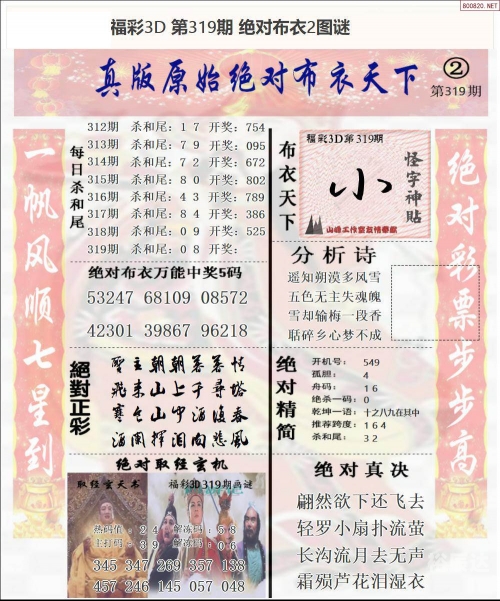 800820.NET
福彩3D 第319期 绝对布衣2图谜
真版原始绝对布衣天下
②
第319期
一帆风顺七星到
每日杀和尾
312期 杀和尾：1 7 开奖：754
313期 杀和尾：7 9 开奖：095
314期 杀和尾：7 2 开奖：672
315期 杀和尾：8 0 开奖：802
316期 杀和尾：4 3 开奖：789
317期 杀和尾：8 4 开奖：386
318期 杀和尾：0 9 开奖：525
319期 杀和尾：0 8 开奖：
布衣天下
福彩3D第319期
小
怪字神贴
绝对彩票步步高
绝对布衣万能中奖5码
53247 68109 08572
42301 39867 96218
分析诗
遥知朔漠多风雪
五色无主失魂魄
雪却输梅一段香
聒碎乡心梦不成
絕對正彩
聖主朝朝暮暮情
飛来山上千尋塔
寒
绝对精简
开机号：549
孤胆：4
舟码：1 6
绝杀一码：0
乾坤一语：十之八九在其中
推荐跨度：1 6 4
杀和尾：3 2
绝对取经玄机
取经玄天书
福彩3D319期画谜
热码值：2 4 解冻码：5 8
主打码：3 9 解冻码：0 6
345 347 269 357 138
457 246 145 057 048
绝对真决
翩然欲下还飞去
轻罗小扇扑流萤
长沟流月去无声
霜殒芦花泪湿衣